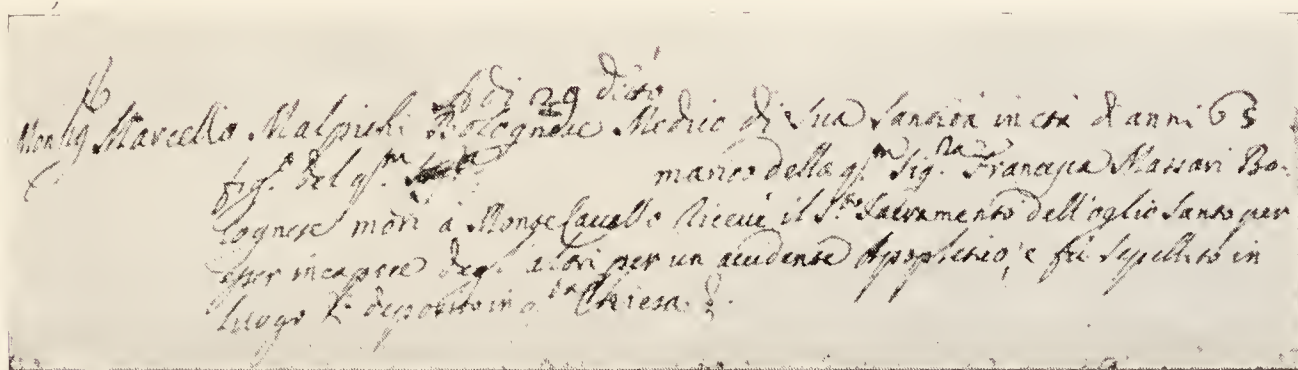 A di 29 dicto
Monsig. Marcello Malpichi Bolognese Medico di Sua Santità in età di anni 65
fig.º del q.m marito della q.m Sig.ra Francesca Massari Bo-
lognese morì à Monte Cavallo ricevè il S.to Sacramento dell'oglio santo per
esser incapace degl'altri per un accidente Apopletico, e fù sepellito in
luogo di deposito in q.ta Chiesa.